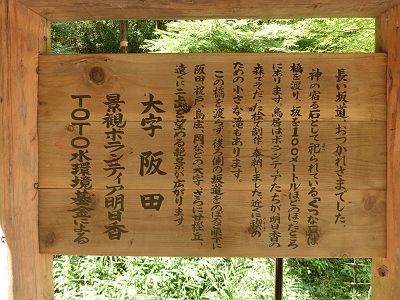 長い坂道、おつかれさまでした。
神の宿る石として祀られている「くつな石」は
橋を渡り、坂を100メートルほどのぼったところ
にあります。鳥居はボランティアたちが明日香の
森でそだった桧で制作、奉納しました。近に禊の
ための小さな滝もあります。
この橋を渡らず、後ろ側の坂道をのぼると眼下に
阪田、祝戸、島庄、岡などの大字、さらに甘樫丘、
遠く二上山を望める絶景が広がります。
大字 阪田
景観ボランティア明日香
TOTO水環境基金による